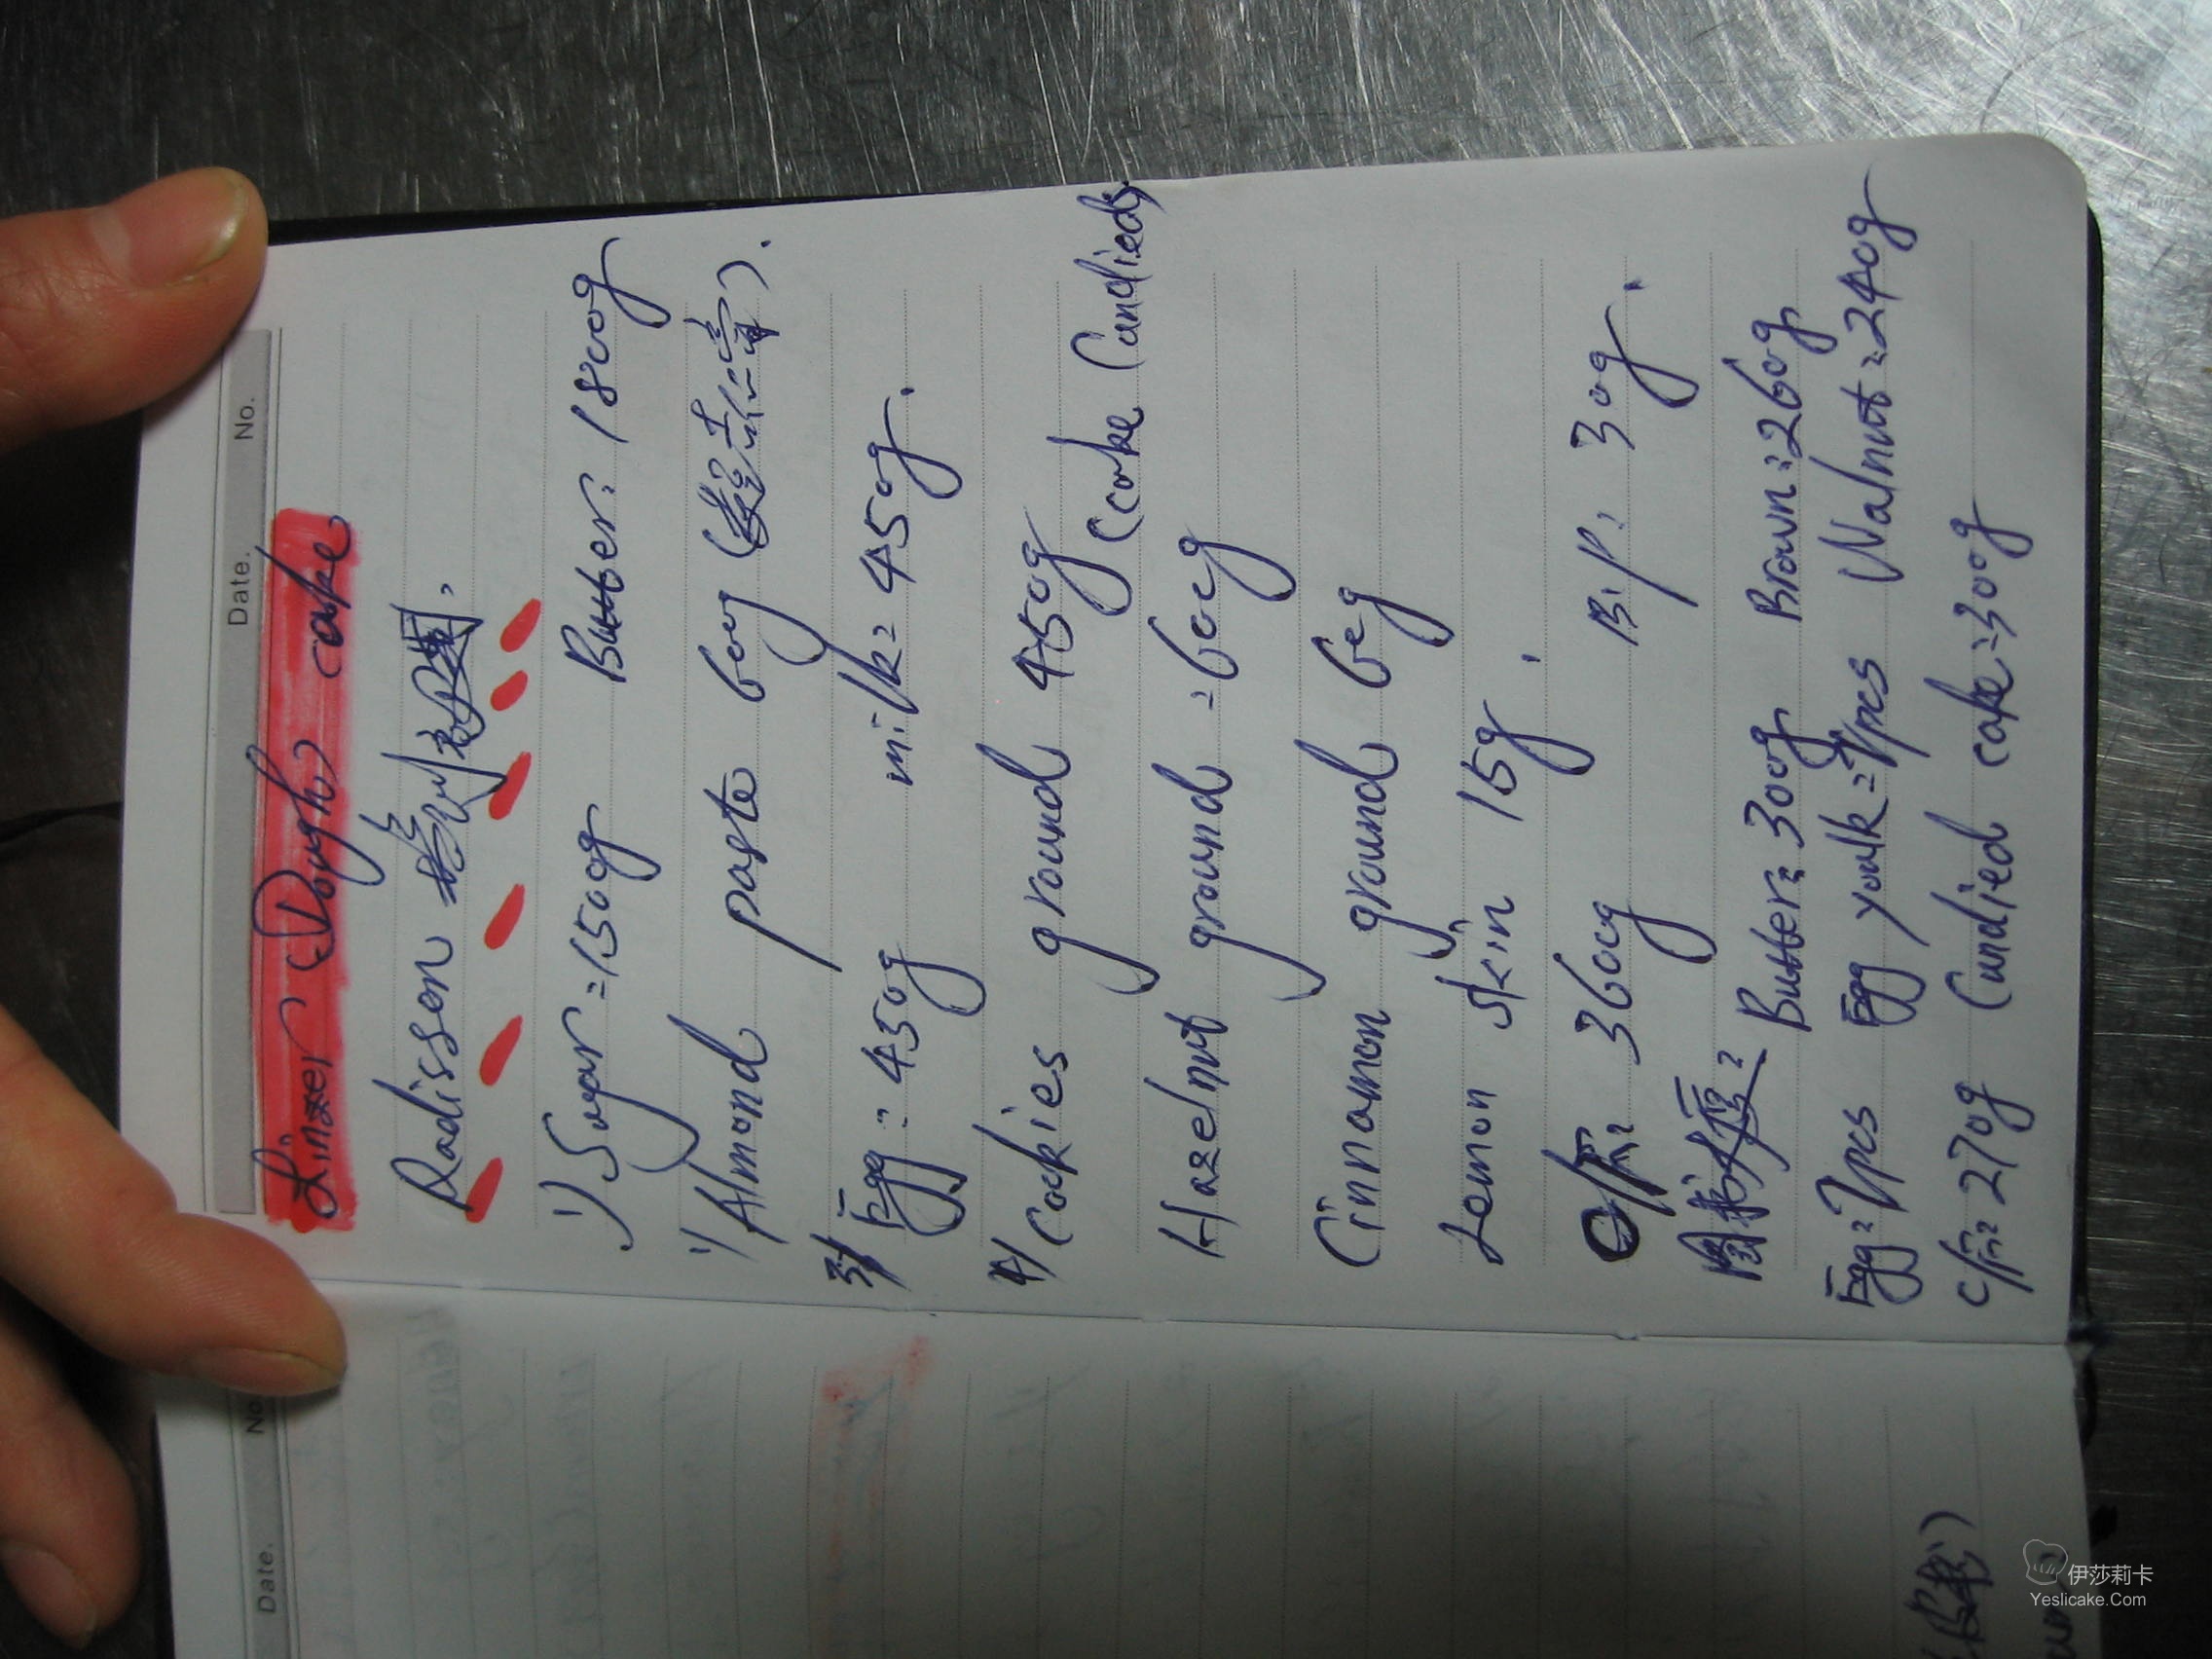 Date. No.
Linzer Dough cake
Radisson
1) Sugar=1500g Butter: 1800g
1) Almond paste 600g
3) Egg = 450g milk= 450g.
4) Cookies ground 450g
(cake Candied)
Hazelnut ground =600g
Cinnamon ground 60g
Lemon skin 15g.
3600g B.P: 30g.
Butter: 300g Brown:260g
Egg=2pcs Egg yourlk=2pcs Walnut=240g
270g Candied cake=300g
Date. No
伊莎莉卡
Yeslicake.Com